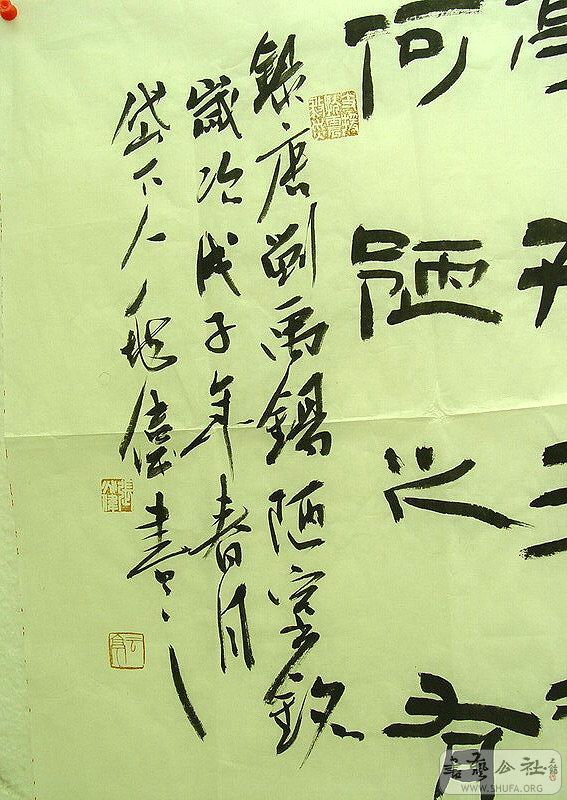 何陋之有
錄唐劉禹錫陋室銘
歲次戊子年春月
岱下人書之
書藝公社
WWW.SHUFA.ORG